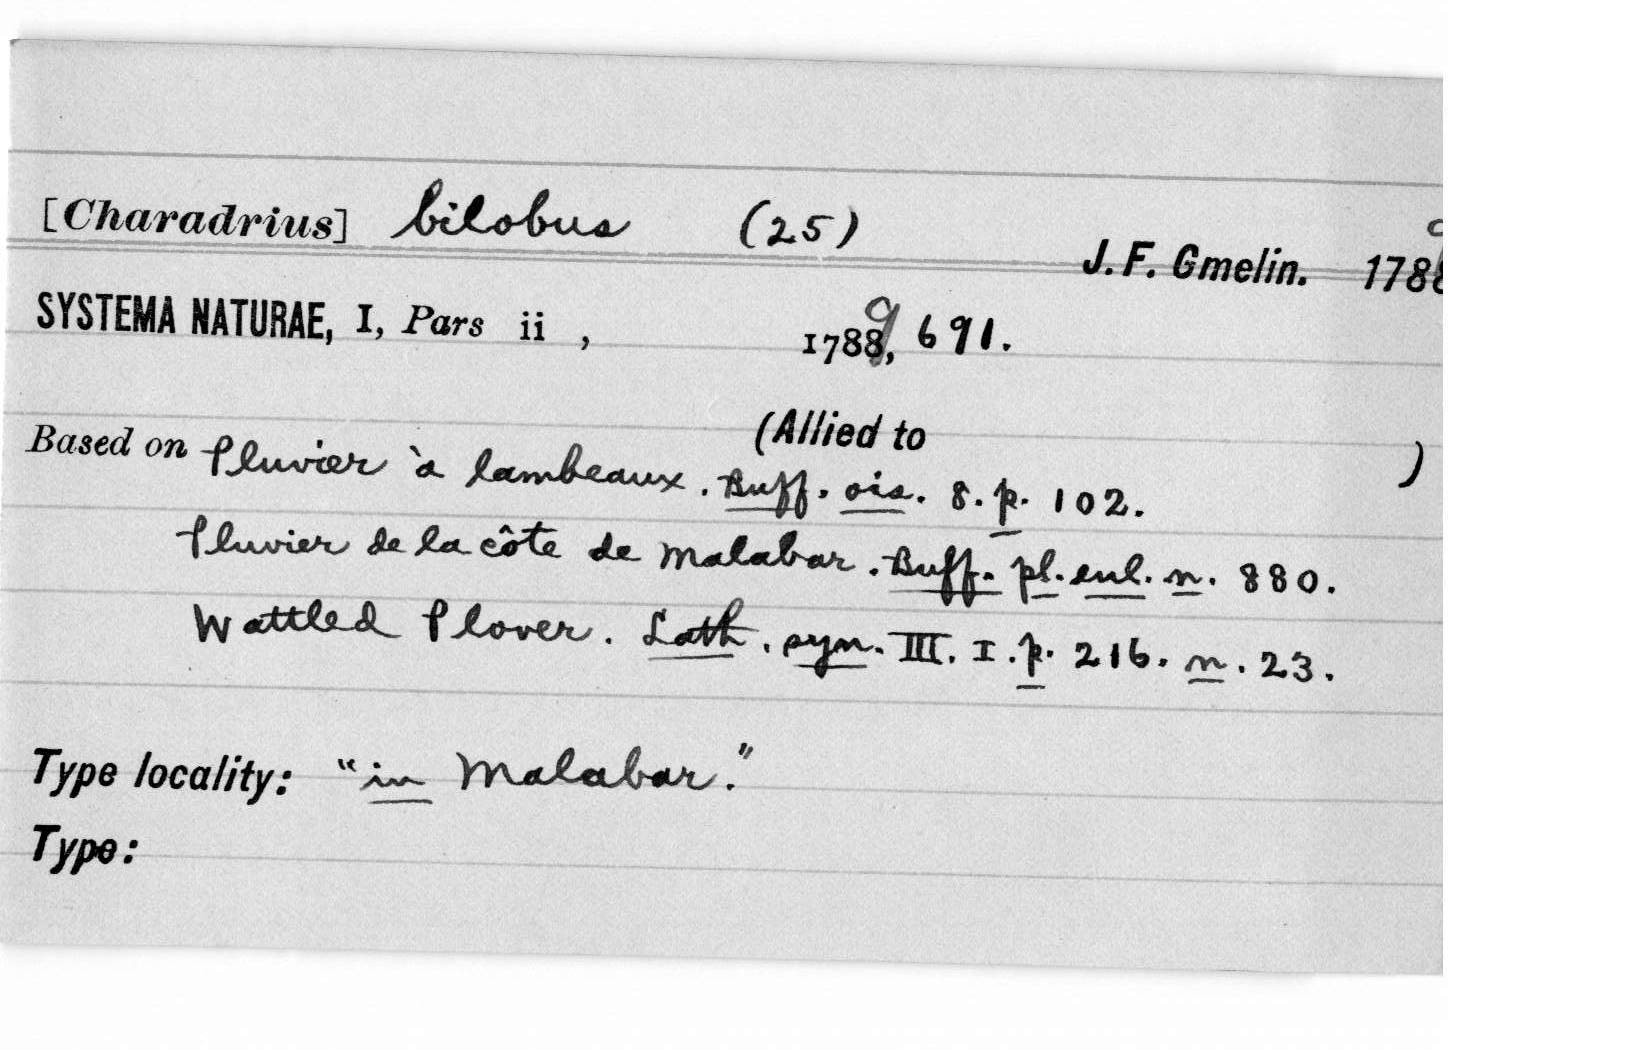 [Charadrius] bilobus (25)
J. F. Gmelin. 1789
SYSTEMA NATURAE, I, Pars ii , 1789, 691.
(Allied to )
Based on Pluvier à lambeaux. Buff. ois. 8. p. 102.
Pluvier de la côte de Malabar. Buff. pl. enl. n. 880.
Wattled Plover. Lath. syn. III. I. p. 216. n. 23.
Type locality: "in Malabar."
Type: